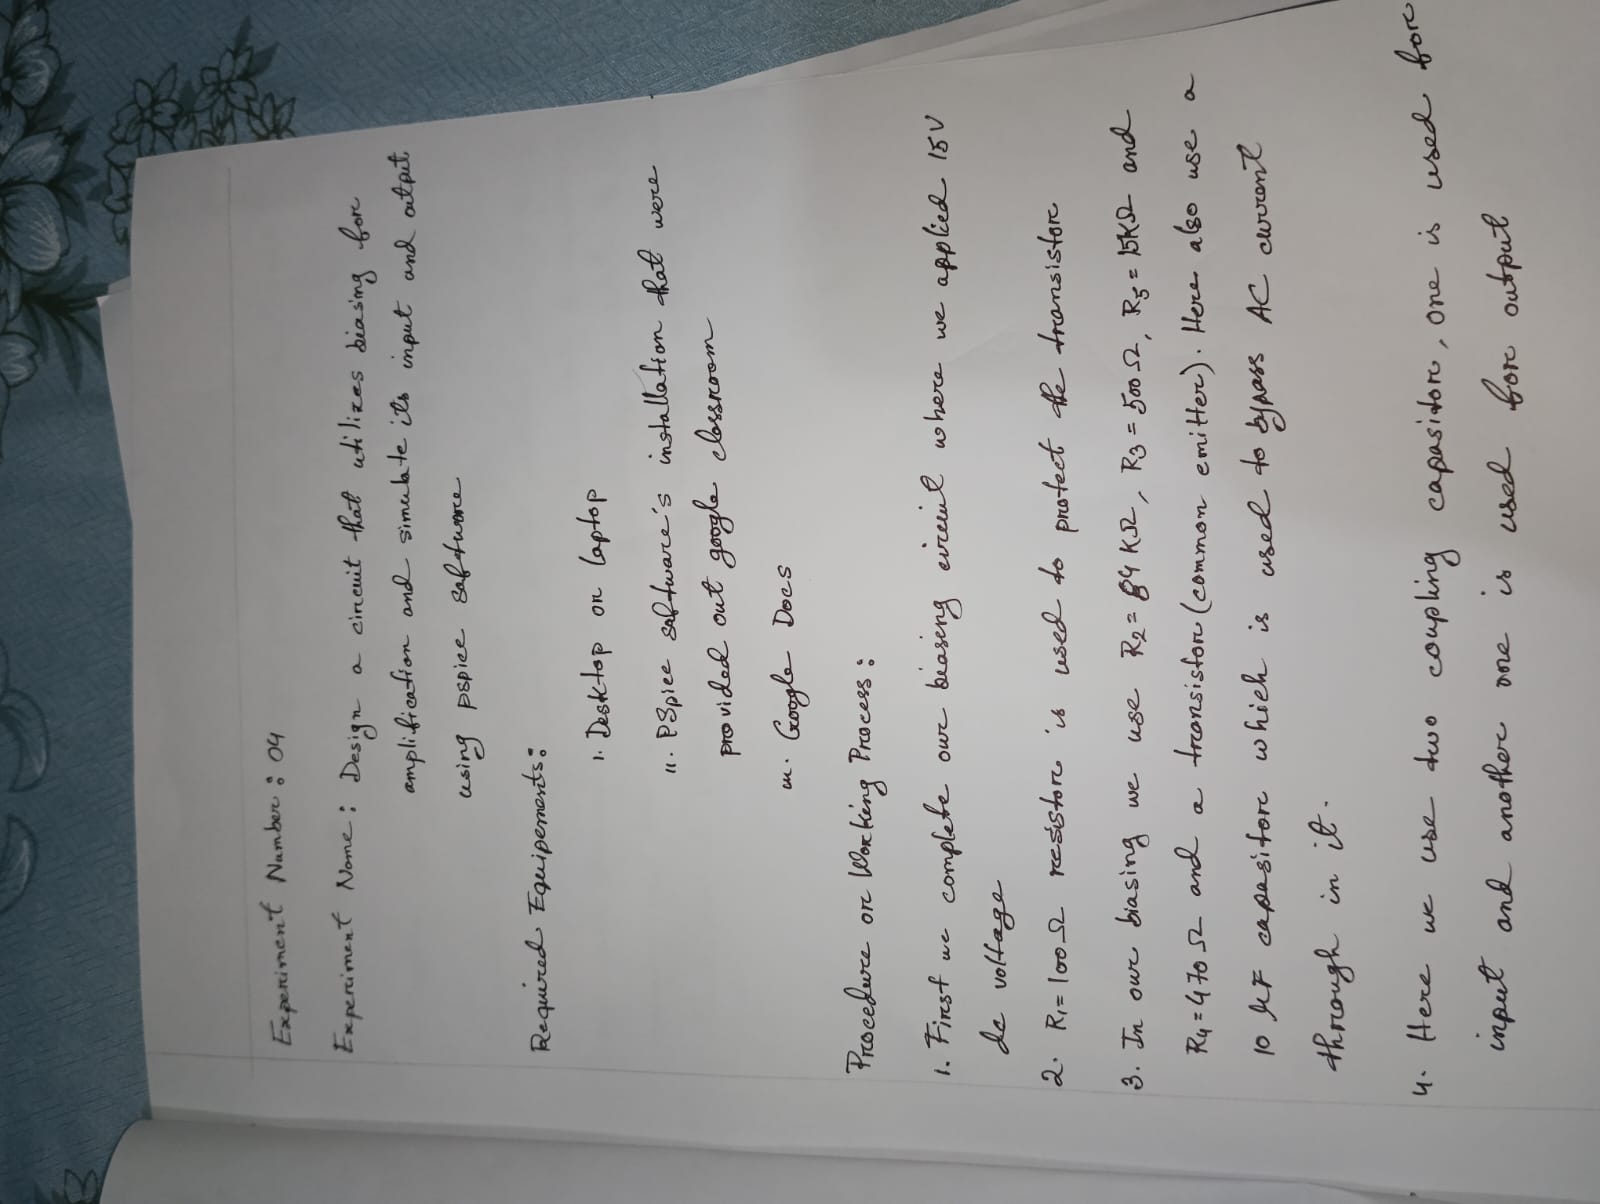 Experiment Number : 04
Experiment Name : Design a circuit that utilizes biasing for
amplification and simulate its input and output
using pspice software
Required Equipements :
i. Desktop or laptop
ii. PSpice software's installation that were
provided out google classroom
iii. Google Docs
Procedure or Working Process :
1. First we complete our biasing circuit where we applied 15V
dc voltage
2. R₁ = 100Ω resistor is used to protect the transistor
3. In our biasing we use R₂ = 84 KΩ, R₃ = 500Ω, R₅ = 15KΩ and
R₄ = 470Ω and a transistor (common emitter). Here also use a
10 μF capasitor which is used to bypass AC current
through in it.
4. Here we use two coupling capasitor, one is used for
input and another one is used for output